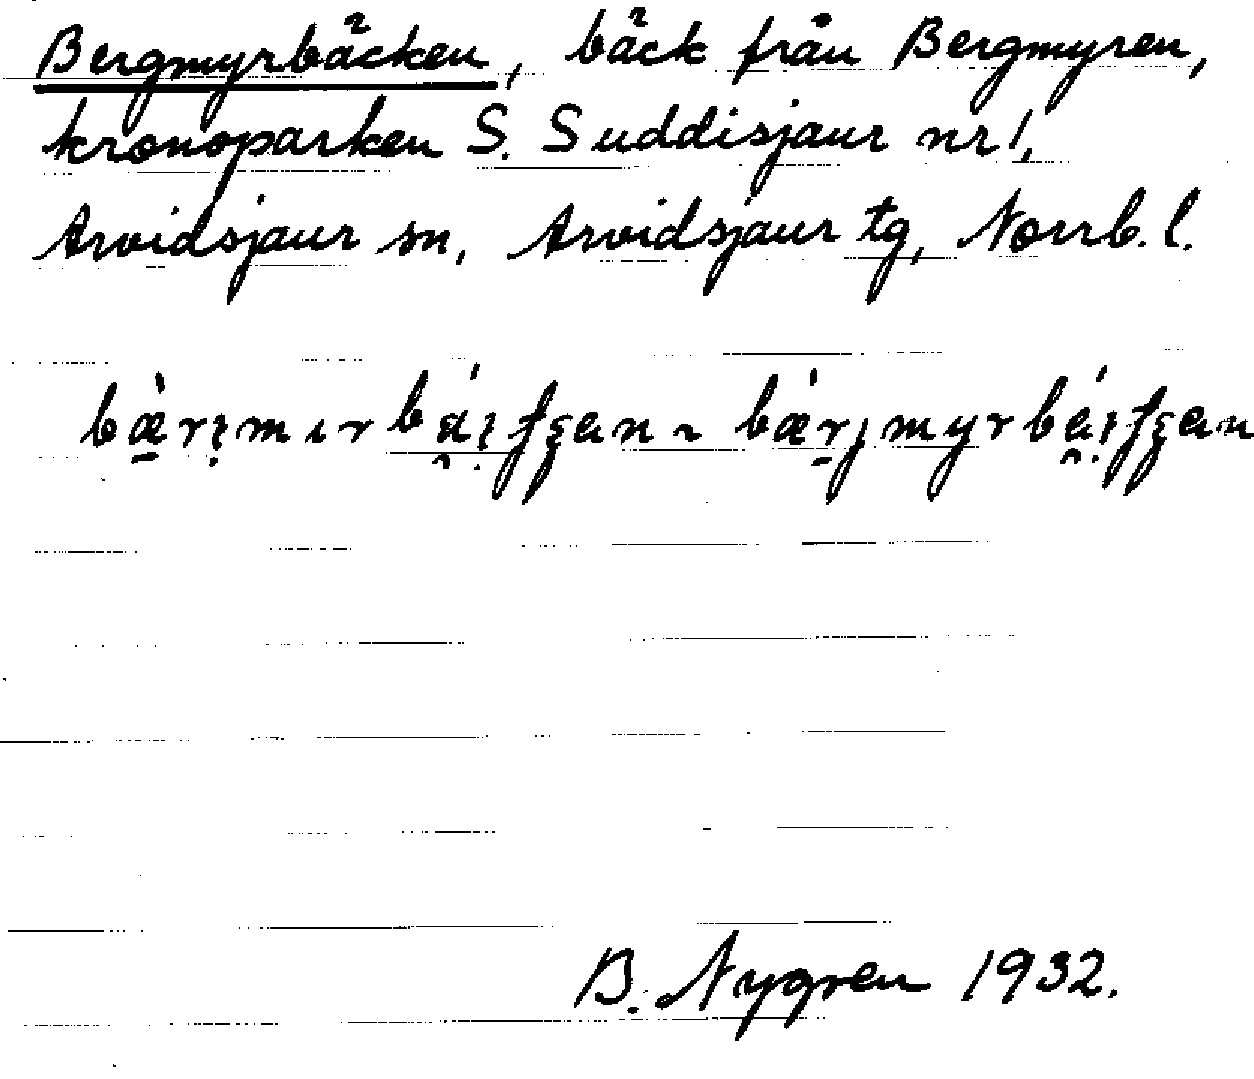 Bergmyrbäcken, bäck från Bergmyren,
kronoparken S. Suddisjaur nr 1,
Arvidsjaur sn, Arvidsjaur tg, Norrb. l.
B. Nygren 1932.